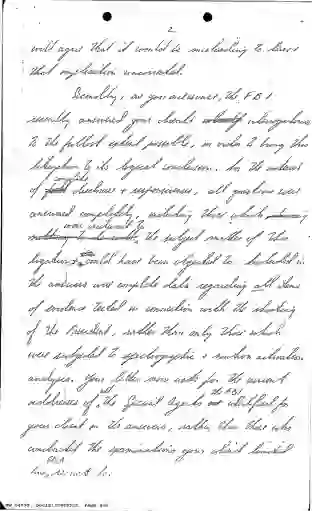 2
will agree that it would be misleading to leave
that implication uncorrected.
Secondly, as you are aware, the FBI
recently answered your client's interrogatories
to the fullest extent possible, in order to bring this
litigation to its logical conclusion. In the interest
of complete disclosure + responsiveness, all questions were
answered completely, including those which
were irrelevant to the subject matter of this
litigation + could have been objected to. Included in
the answers was complete data regarding all items
of evidence tested in connection with the shooting
of the President, rather than only those which
were subjected to spectrographic + neutron activation
analyses. Your letter now asks for the current
addresses of all the Special Agents the FBI identified for
your client in the answers, rather than those who
conducted the examinations your client limited
to.